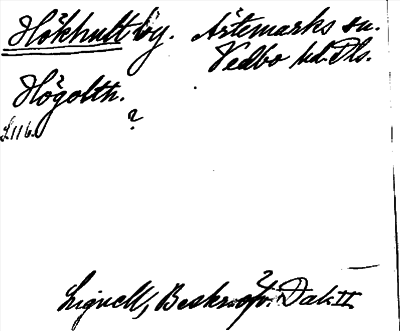 Hökhult by. Ärtemarks sn.
Vedbo hd. Dls.
Högolth.
L 116.
?
Lignell, Beskrifv. Dal. II